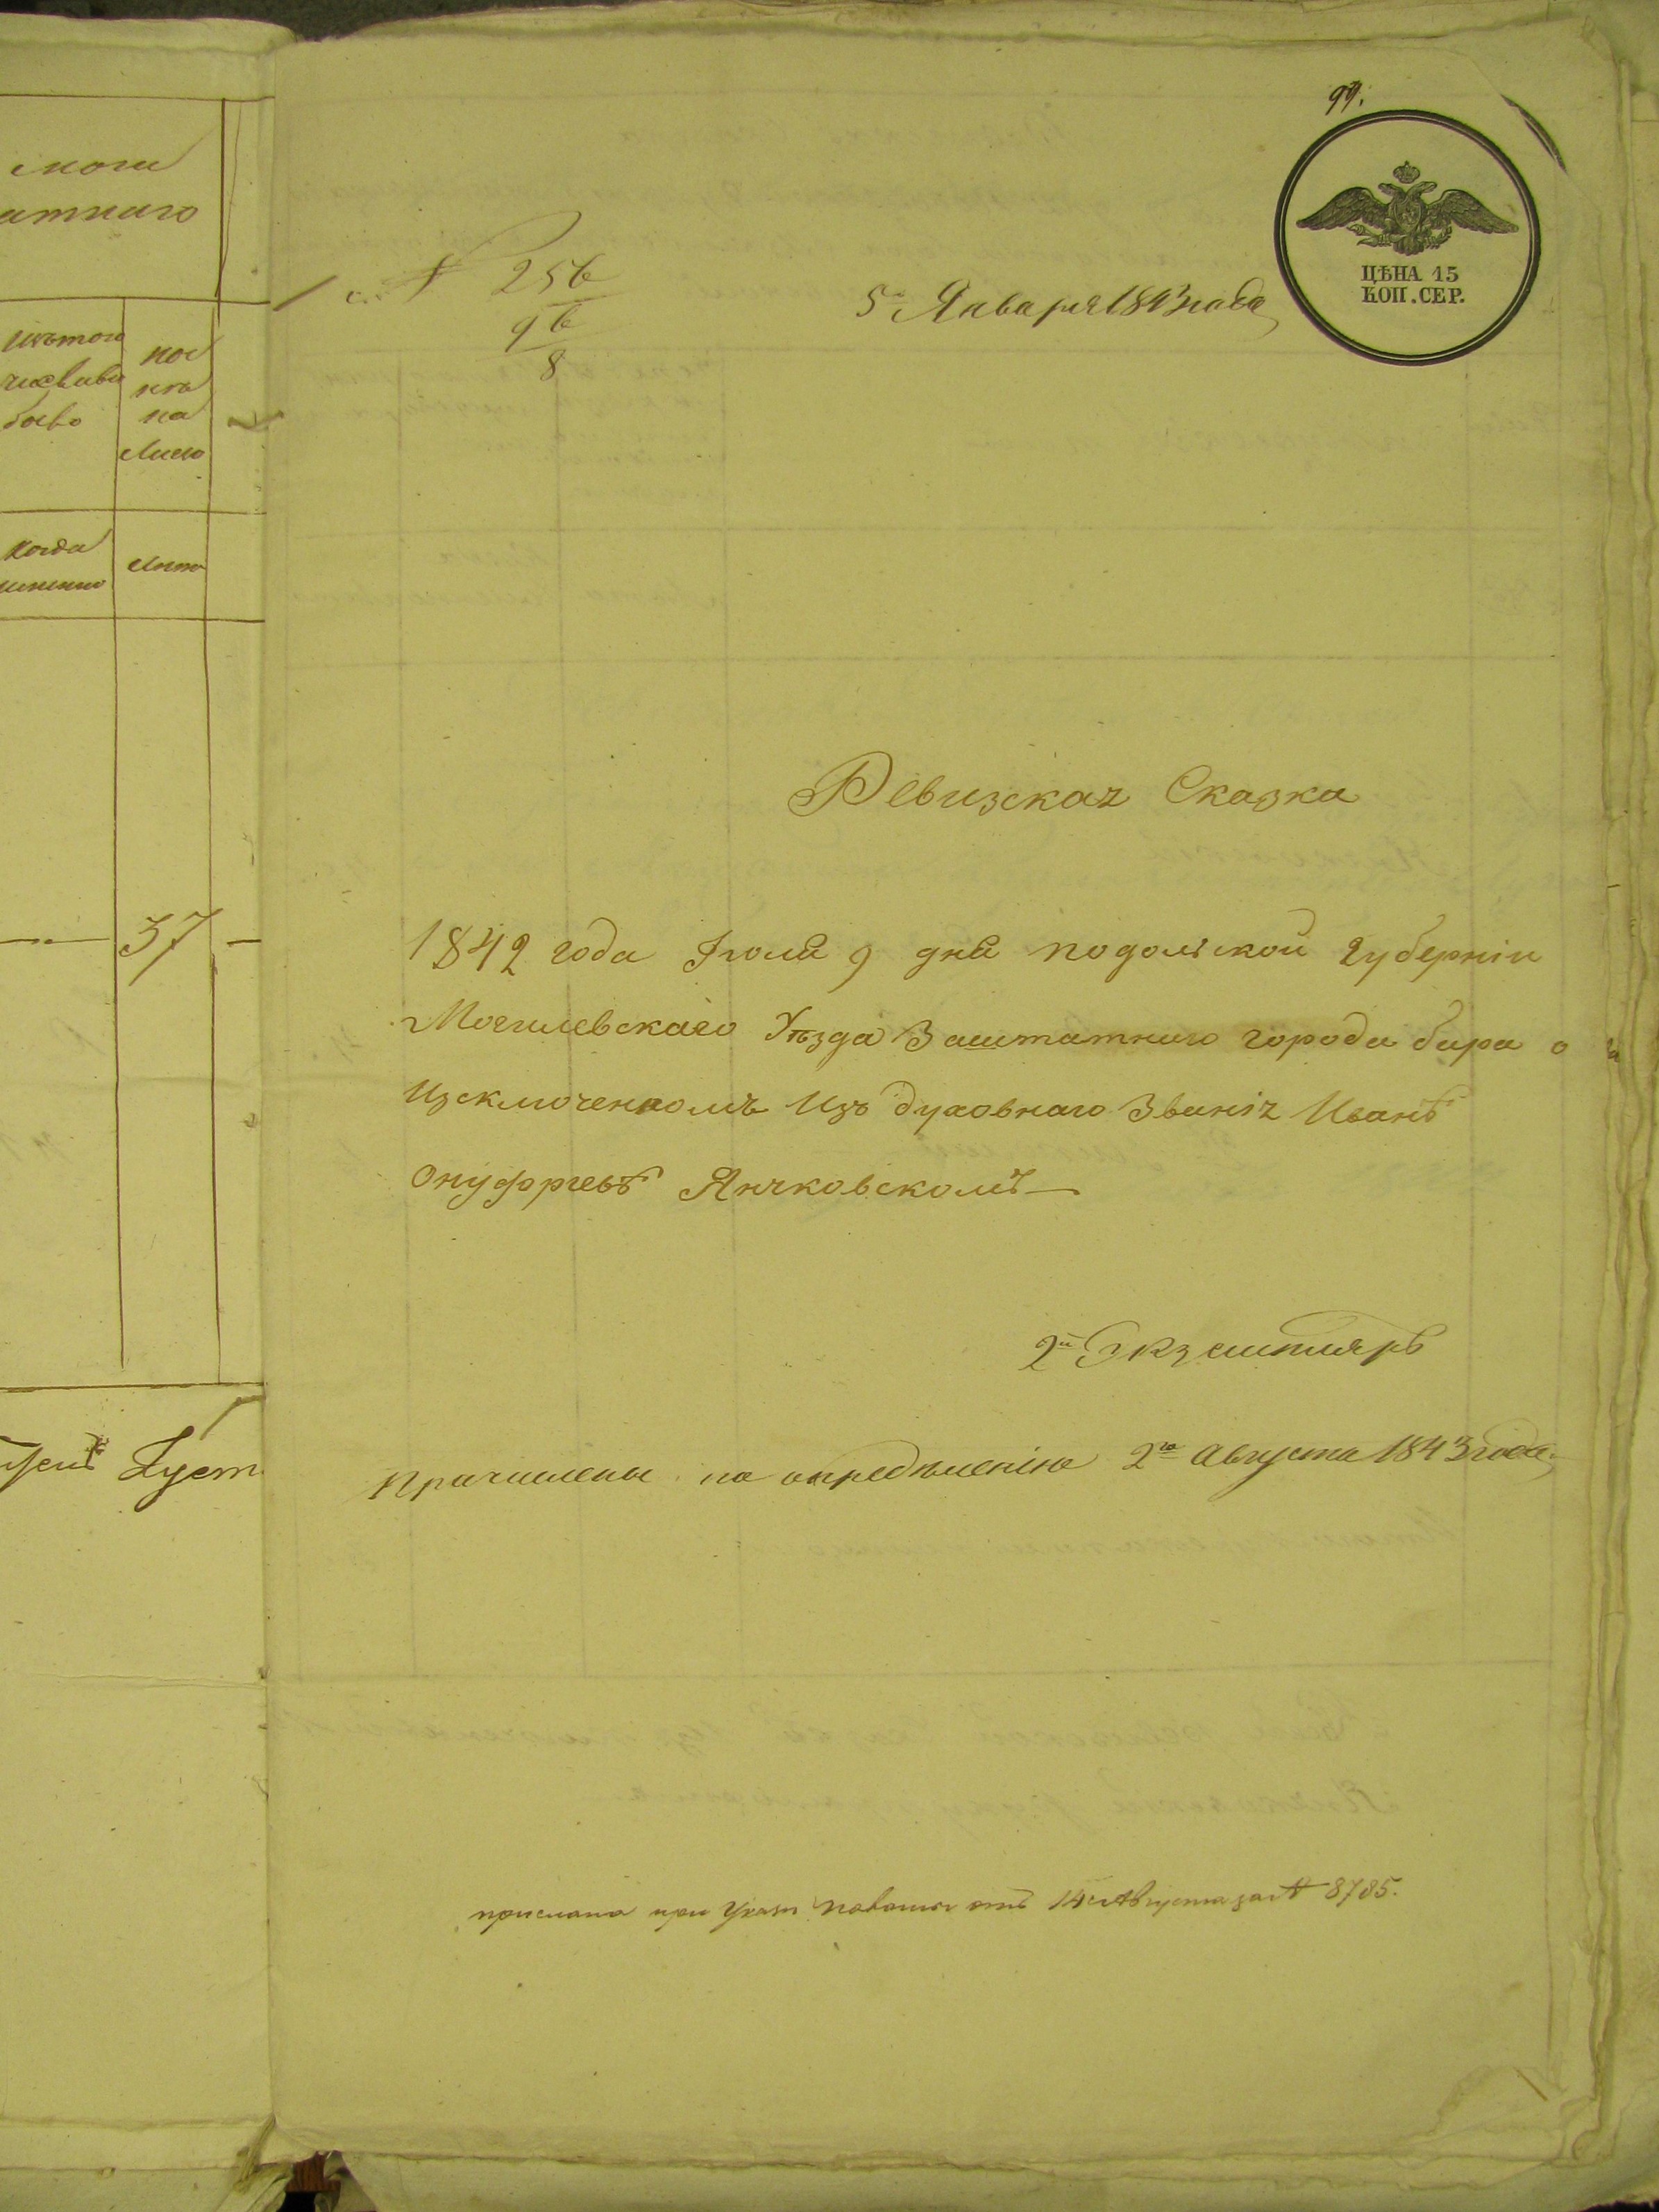 мости
атнаго
изъ того
числа выбыло
ныне на лицо
когда именно
лета
37
Густ
99.
ЦѢНА 15
КОП. СЕР.
№ 256
96
8
5го Января 1843 года
Ревизская Сказка
1842 года Июля 9 дня подольской губерніи
Могилевскаго Уѣзда Заштатного города бара о
Изключенномъ Изъ духовнаго Званія Иванѣ
Онуфріевѣ Янчковскомъ
2й Экземпляръ
Причислены по опредѣленію 2го Августа 1843 года
прислана при Указе Палаты отъ 14 Августа за № 8785.